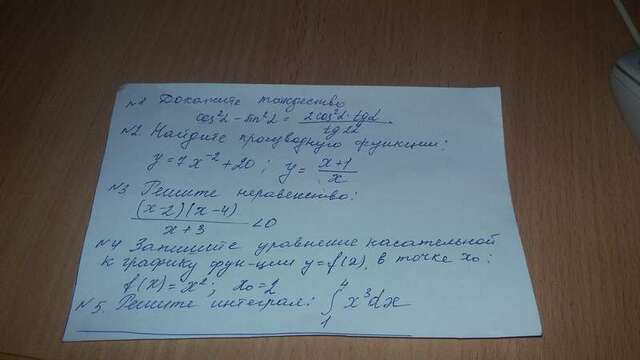 №1 Докажите тождество
cos²α - sin²α = 2cos²α·tgα / tg2α.
№2 Найдите производную функции:
y = 7x⁻² + 20; y = x+1 / x
№3 Решите неравенство:
(x-2)(x-4) / x+3 <0
№4 Запишите уравнение касательной
к графику фун-ции y=f(x), в точке x₀:
f(x) = x²; x₀ = 2
№5. Решите интеграл: ∫₁⁴ x³dx